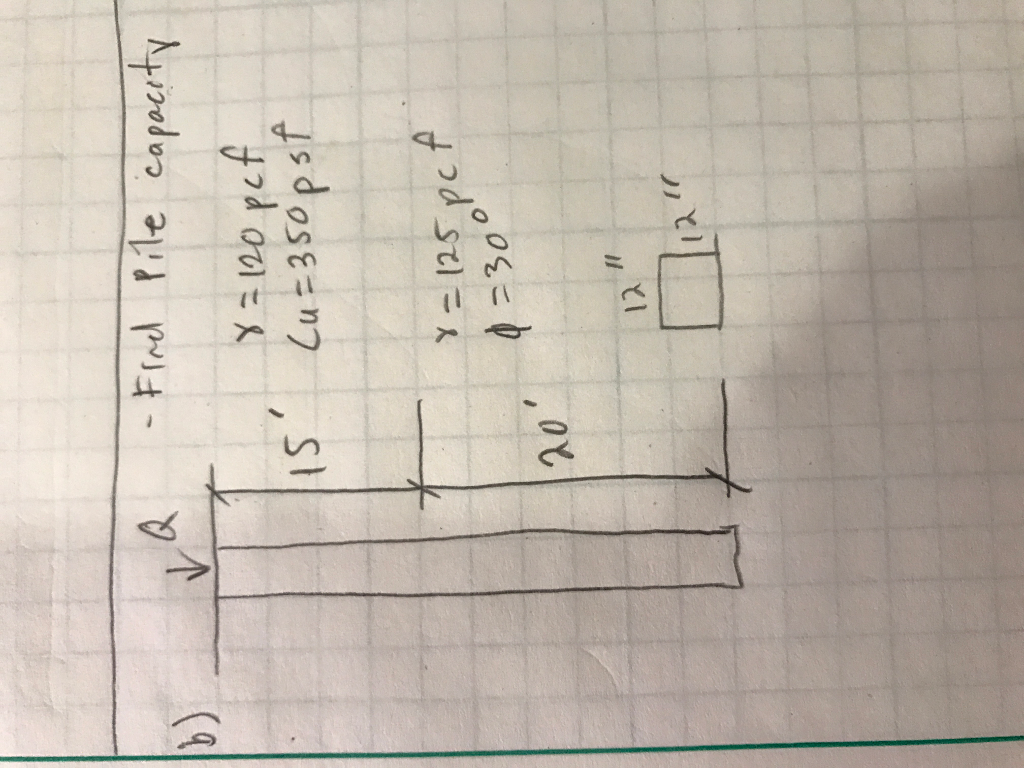 b)
Q
- Find Pile capacity
15'
γ = 120 pcf
Cu = 350 psf
20'
γ = 125 pcf
ϕ = 30°
12"
12"